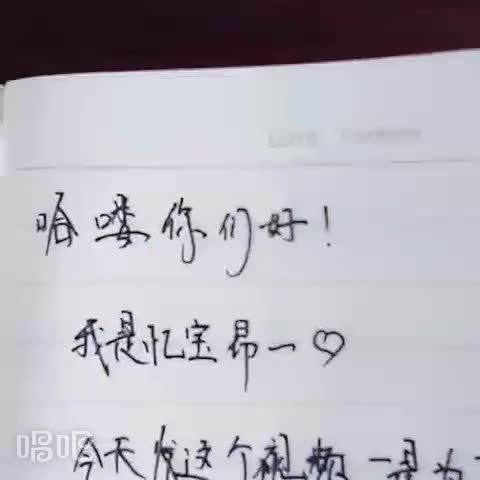 哈喽你们好！
我是忆宝昂一♡
今天发这个视频一是为
唱吧